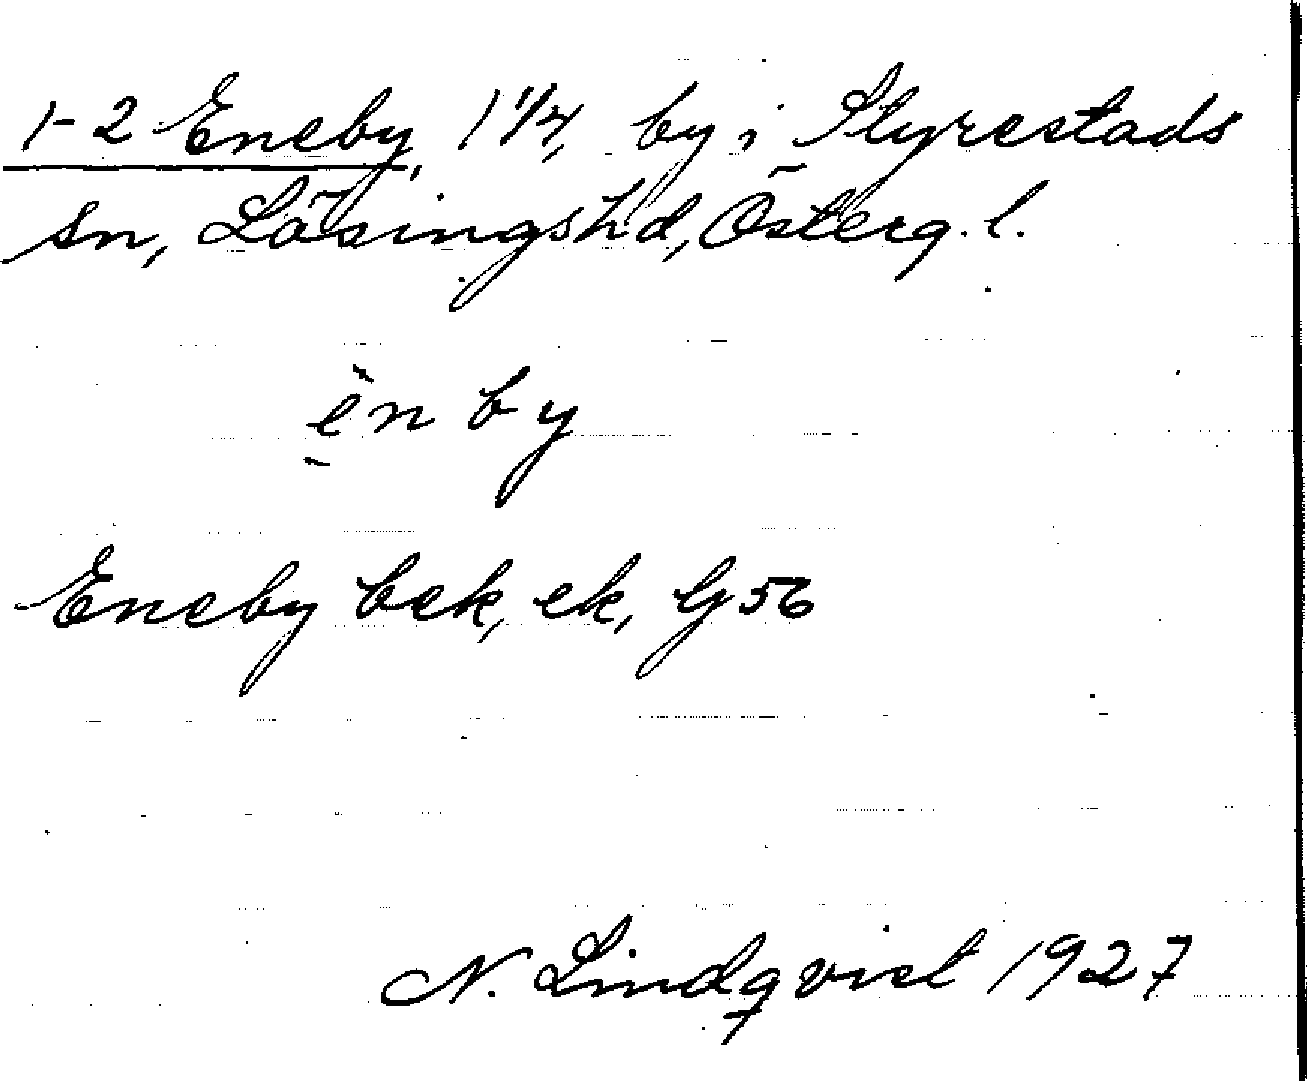 1-2 Eneby, 1 1/4, by i Styrestads
sn, Lösingshd, Österg. l.
èn by
Eneby bek, ek, G56
N. Lindqvist 1927